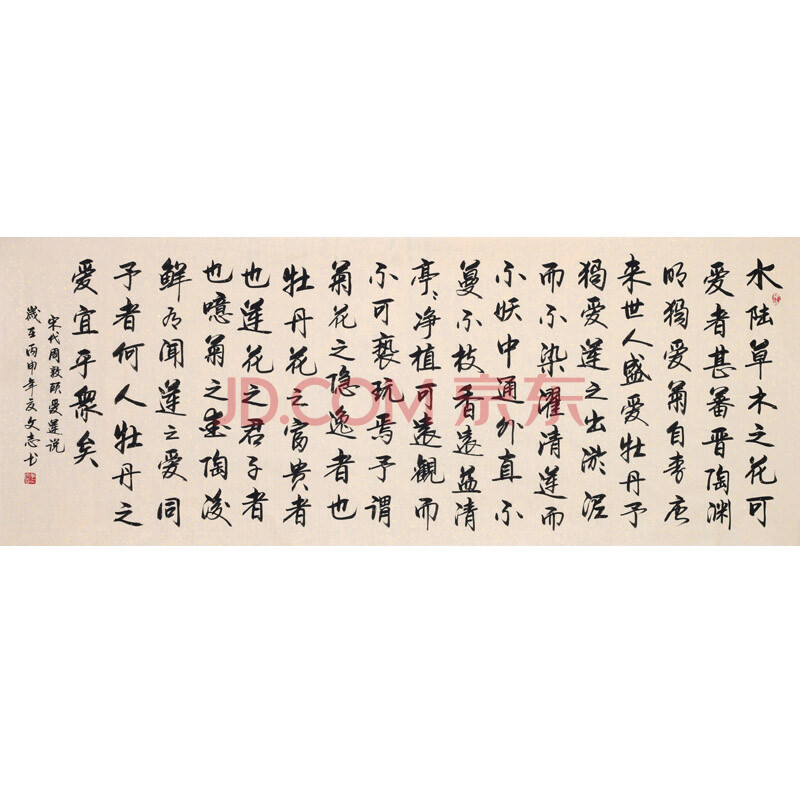 水陆草木之花可
爱者甚蕃晋陶渊
明獨爱菊自李唐
来世人盛爱牡丹予
獨爱莲之出淤泥
而不染濯清莲而
不妖中通外直不
蔓不枝香遠益清
亭々净植可遠觀而
不可亵玩焉予谓
菊花之隐逸者也
牡丹花之富贵者
也莲花之君子者
也噫菊之爱陶後
鲜有闻莲之爱同
予者何人牡丹之
爱宜乎眾矣
宋代周敦颐爱莲说
歲在丙申年夏文志书
JD.COM 京东